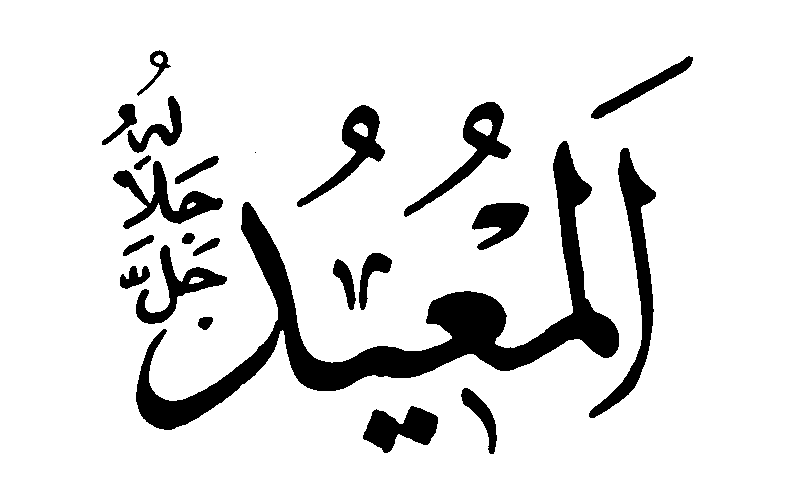 اَلْمُعِيدُ
جَلَّ جَلَالُهُ